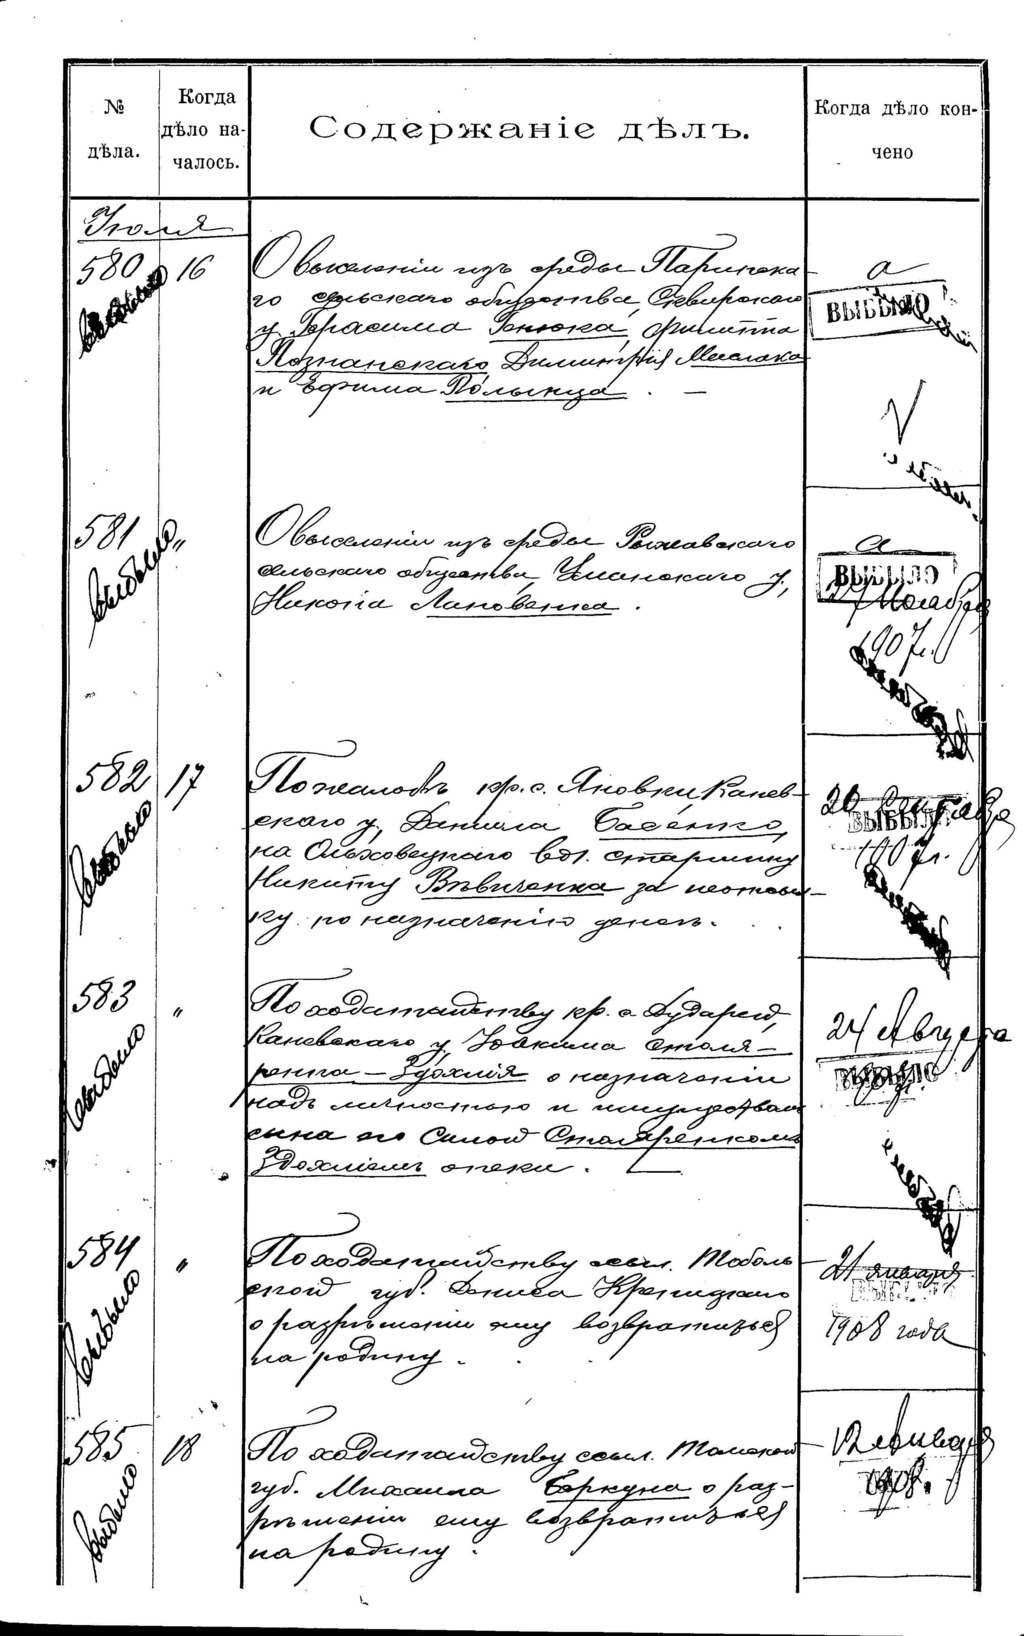 № дѣла.
Когда дѣло началось.
Содержаніе дѣлъ.
Когда дѣло кончено
Іюля
580 16
О выселеніи изъ среды
го сельскаго общества, Сквирскаго
у. Герасима Генюка, Филиппа
Познанскаго, Димитрія
и Ефима Волынца. —
а
ВЫБЫЛО
выбыло
581 "
О выселеніи изъ среды Рыжавскаго
сельскаго общества Уманскаго у.,
Никона Лановенка.
а
ВЫБЫЛО
1907г.
выбыло
582 17
По жалобѣ кр. с. Яновки Канев-
скаго у, Данила Басенко,
на Ольховецкаго вол. старшину
Никиту Вѣвиченка за неотсыл-
ку по назначенію денегъ.
20 Сентября
ВЫБЫЛО
1907г.
выбыло
583 "
По ходатайству кр. с. Дударей,
Каневскаго у, Іоакима Столя-
ренка – Здохлія о назначеніи
надъ личностью и имуществомъ
сына его Силой Столяренкомъ
Здохліемъ опеки. —
24 Августа
ВЫБЫЛО
выбыло
584 "
По ходатайству ссыл. Тоболь-
ской губ. Дениса
о разрѣшеніи ему возвратиться
на родину.
21 января
1908 года
выбыло
585 18
По ходатайству ссыл. Томской
губ. Михаила Беркуна о раз-
рѣшеніи ему возвратиться
на родину.
12 Января
1908.
выбыло